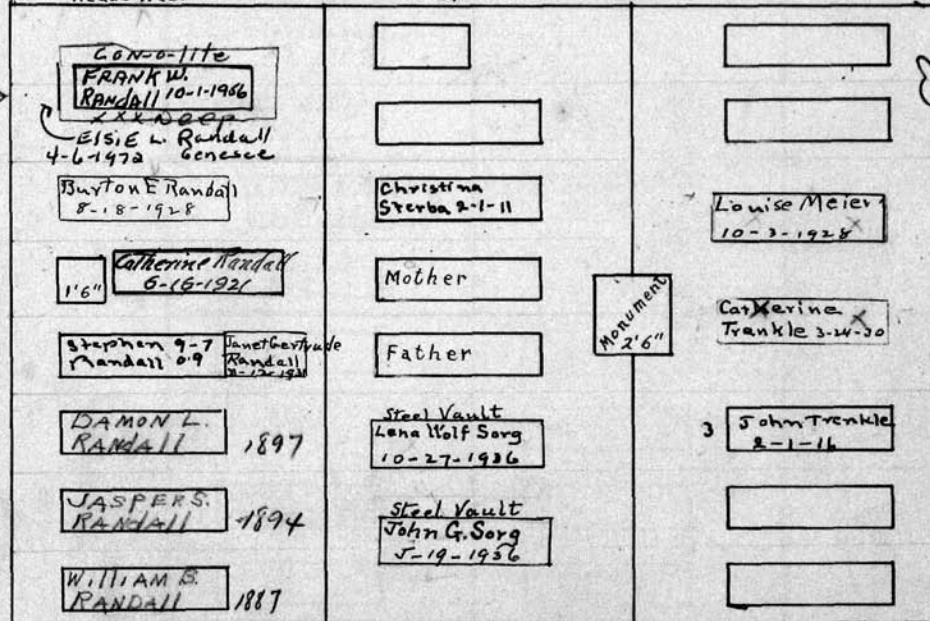 CON-O-lite
FRANK W.
RANDALL 10-1-1956
XXX Deep
ELSIE L. Randall
4-6-1972 Genesee
Burton E Randall
8-18-1928
1'6"
Catherine Randall
6-16-1921
Stephen 9-7
Randall 09
Janet Gertrude
Randall
DAMON L.
RANDALL 1897
JASPER S.
RANDALL 1894
William B.
RANDALL 1887
Christina
Sterba 2-1-11
Mother
Father
Steel Vault
Lena Wolf Sorg
10-27-1936
Steel Vault
John G. Sorg
5-19-1936
Monument
2'6"
Louise Meier
10-3-1928
Catherine
Trenkle 3-24-30
3
John Trenkle
2-1-16